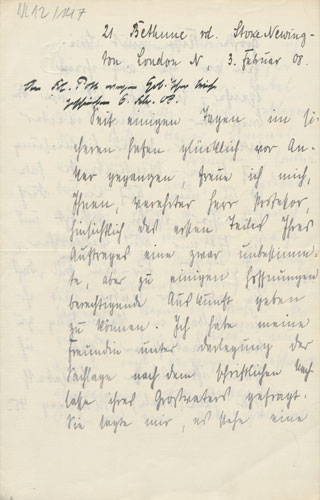 21 Bethune rd. Stoke Newing-
ton, London N, 3. Februar 08.
Seit einigen Tagen im si-
cheren Hafen glücklich vor An-
ker gegangen, freue ich mich,
Ihnen, verehrter Herr Professor,
hinsichtlich des ersten Teiles Ihres
Auftrages eine zwar unbestimm-
te, aber zu einigen Hoffnungen
berechtigende Auskunft geben
zu können. Ich habe meine
Freundin unter Darlegung der
Sachlage nach dem schriftlichen Nach-
lasse ihres Grossvaters gefragt.
Sie sagte mir, es stehe eine